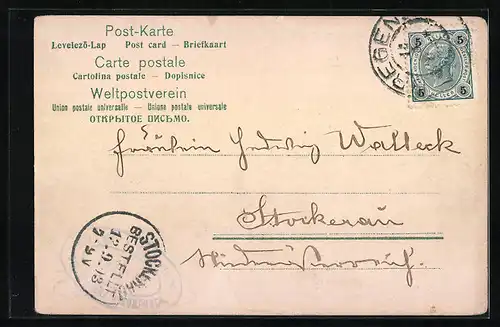 Post-Karte
Levelező-Lap Post card – Briefkaart
Carte postale
Cartolina postale – Dopisnice
Weltpostverein
Union postale universelle – Unione postale universale
ОТКРЫТОЕ ПИСЬМО.
REGEN
5 5
5 5
Fräulein Hedwig Walleck
Stockerau
Niederösterreich.
STOCKERAU
BESTELLT